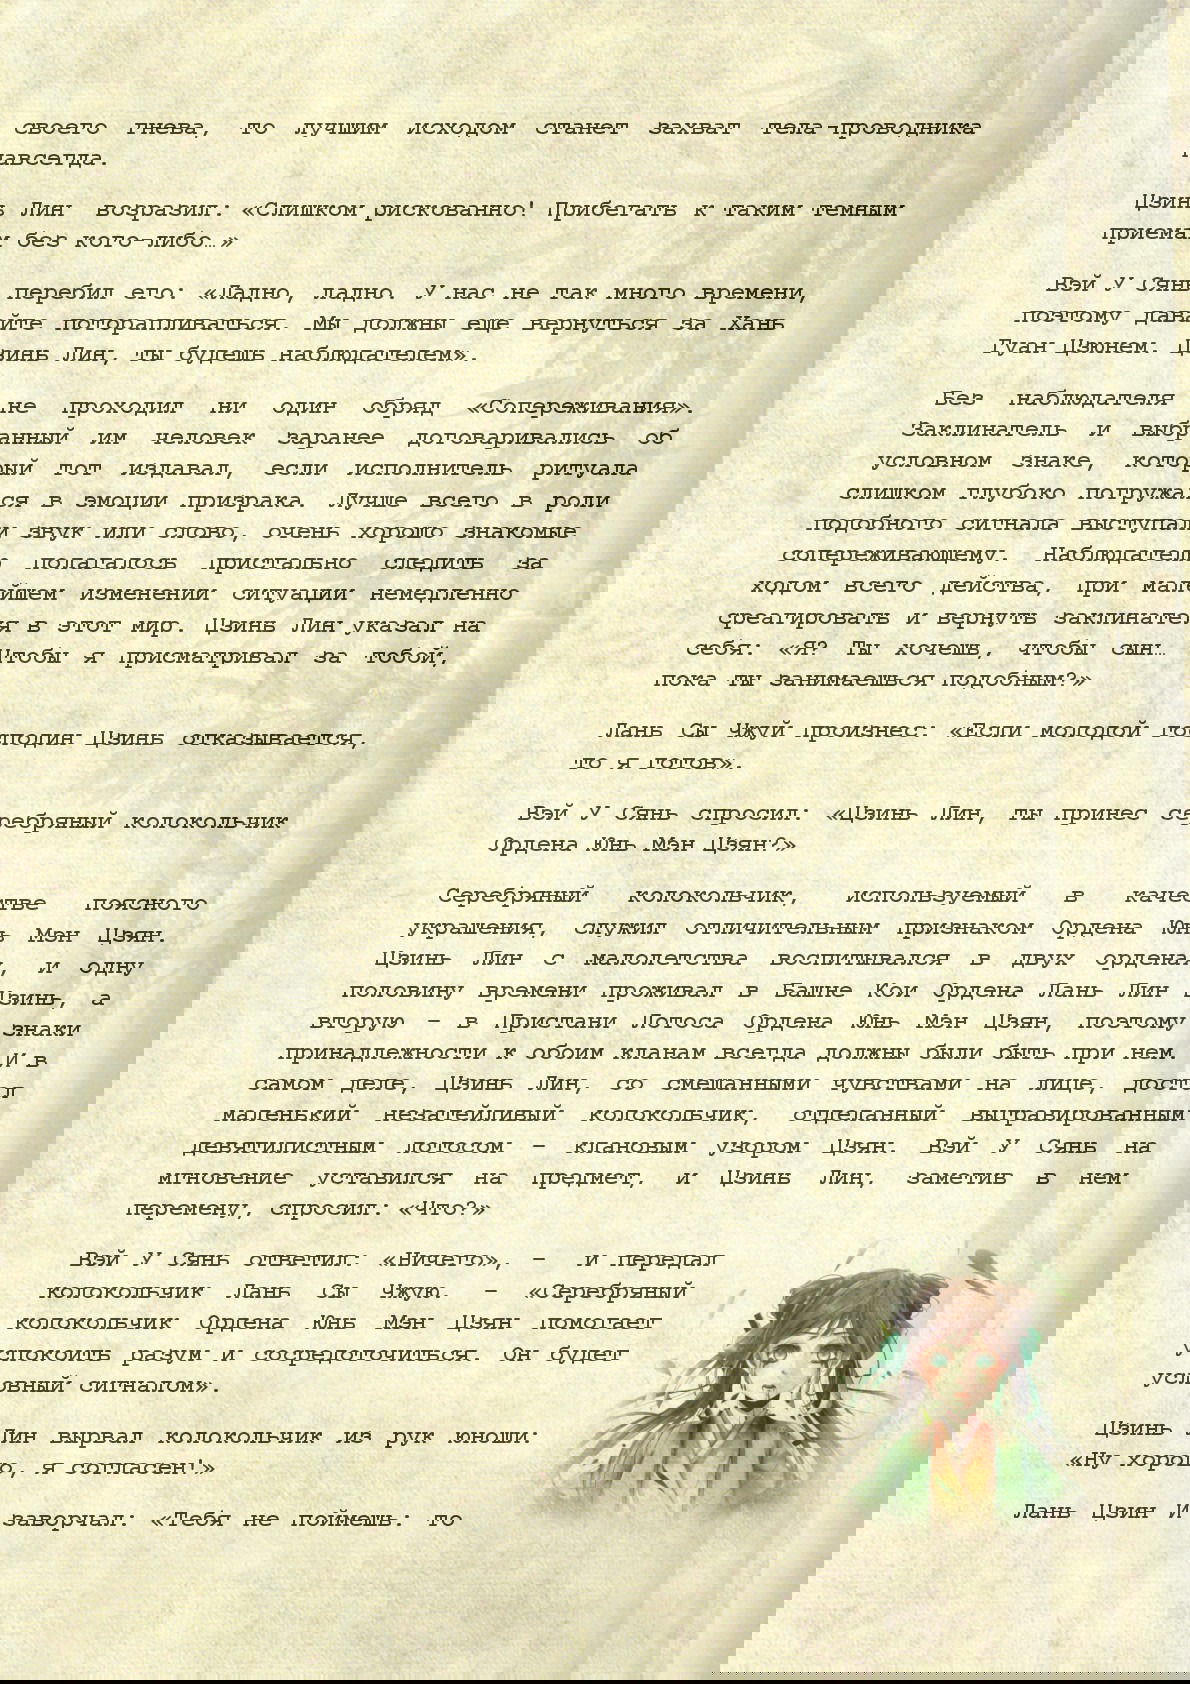 своего гнева, то лучшим исходом станет захват тела-проводника
навсегда.
Цзинь Лин возразил: «Слишком рискованно! Прибегать к таким темным
приемам без кого-либо…»
Вэй У Сянь перебил его: «Ладно, ладно. У нас не так много времени,
поэтому давайте поторапливаться. Мы должны еще вернуться за Хань
Гуан Цзюнем. Цзинь Лин, ты будешь наблюдателем».
Без наблюдателя не проходил ни один обряд «Сопереживания».
Заклинатель и выбранный им человек заранее договаривались об
условном знаке, который тот издавал, если исполнитель ритуала
слишком глубоко погружался в эмоции призрака. Лучше всего в роли
подобного сигнала выступали звук или слово, очень хорошо знакомые
сопереживающему. Наблюдателю полагалось пристально следить за
ходом всего действа, при малейшем изменении ситуации немедленно
среагировать и вернуть заклинателя в этот мир. Цзинь Лин указал на
себя: «Я? Ты хочешь, чтобы сын… Чтобы я присматривал за тобой,
пока ты занимаешься подобным?»
Лань Сы Чжуй произнес: «Если молодой господин Цзинь отказывается,
то я готов».
Вэй У Сянь спросил: «Цзинь Лин, ты принес серебряный колокольчик
Ордена Юнь Мэн Цзян?»
Серебряный колокольчик, используемый в качестве поясного
украшения, служил отличительным признаком Ордена Юнь Мэн Цзян.
Цзинь Лин с малолетства воспитывался в двух орденах, и одну
половину времени проживал в Башне Кои Ордена Лань Лин Цзинь, а
вторую – в Пристани Лотоса Ордена Юнь Мэн Цзян, поэтому знаки
принадлежности к обоим кланам всегда должны были быть при нем. И в
самом деле, Цзинь Лин, со смешанными чувствами на лице, достал
маленький незатейливый колокольчик, отделанный выгравированным
девятилистным лотосом – клановым узором Цзян. Вэй У Сянь на
мгновение уставился на предмет, и Цзинь Лин, заметив в нем
перемену, спросил: «Что?»
Вэй У Сянь ответил: «Ничего», – и передал
колокольчик Лань Сы Чжую. – «Серебряный
колокольчик Ордена Юнь Мэн Цзян помогает
успокоить разум и сосредоточиться. Он будет
условный сигналом».
Цзинь Лин вырвал колокольчик из рук юноши:
«Ну хорошо, я согласен!»
Лань Цзин И заворчал: «Тебя не поймешь: то